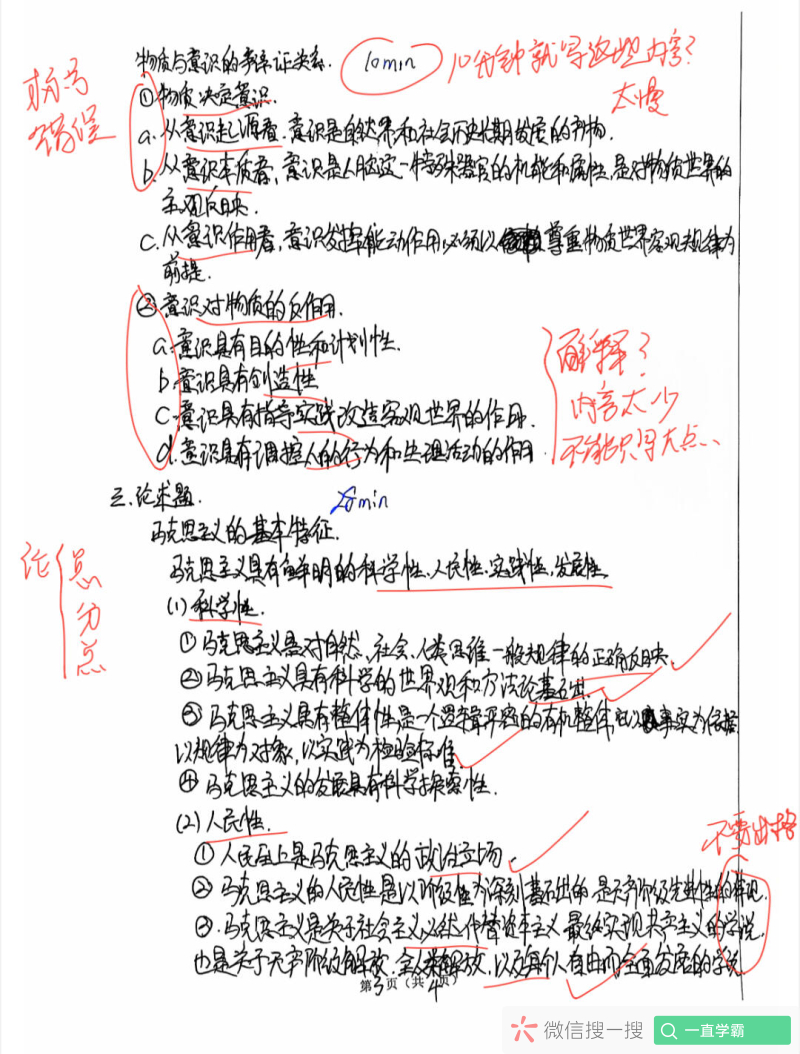 物质与意识的辩证关系. 10min 10分钟就写这些内容?
太慢
标号
错误
①物质决定意识.
a. 从意识起源看,意识是自然界和社会历史长期发展的产物.
b. 从意识本质看,意识是人脑这一特殊器官的机能和属性,是对物质世界的
主观反映.
c. 从意识作用看,意识发挥能动作用,必须以尊重物质世界客观规律为
前提.
②意识对物质的反作用.
a.意识具有目的性和计划性.
b.意识具有创造性
c.意识具有指导实践改造客观世界的作用.
d.意识具有调控人的行为和生理活动的作用
解释?
内容太少
不能只写大点、
三.论述题. 20min
马克思主义的基本特征.
论 总
分
点
马克思主义具有鲜明的科学性、人民性、实践性,发展性.
(1)科学性.
①马克思主义是对自然、社会、人类思维一般规律的正确反映.
②马克思主义具有科学的世界观和方法论基础.
③马克思主义具有整体性,是一个逻辑严密的有机整体,它以事实为依据
以规律为对象,以实践为检验标准.
④马克思主义的发展具有科学探索性.
(2)人民性.
不要出格
①人民至上是马克思主义的政治立场.
②马克思主义的人民性是以阶级性为深刻基础的,是无产阶级先进性的体现
③.马克思主义是关于社会主义必然代替资本主义 最终实现共产主义的学说,
也是关于无产阶级解放.全人类解放,以及每个人自由而全面发展的学说
第3页(共4页)
微信搜一搜 一直学霸